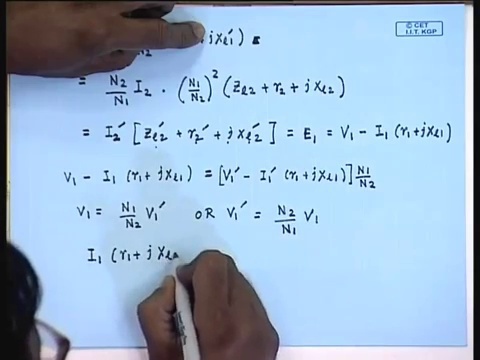 © CET
I.I.T. KGP
N2 jXl1′)
= N2/N1 I2 · (N1/N2)² (Zl2 + r2 + jxl2)
= I2′ [Zl2′ + r2′ + jxl2′] = E1 = V1 − I1 (r1+jxl1)
V1 − I1 (r1+jxl1) = [V1′ − I1′ (r1+jxl1)] N1/N2
V1 = N1/N2 V1′ OR V1′ = N2/N1 V1
I1 (r1+ j Xl